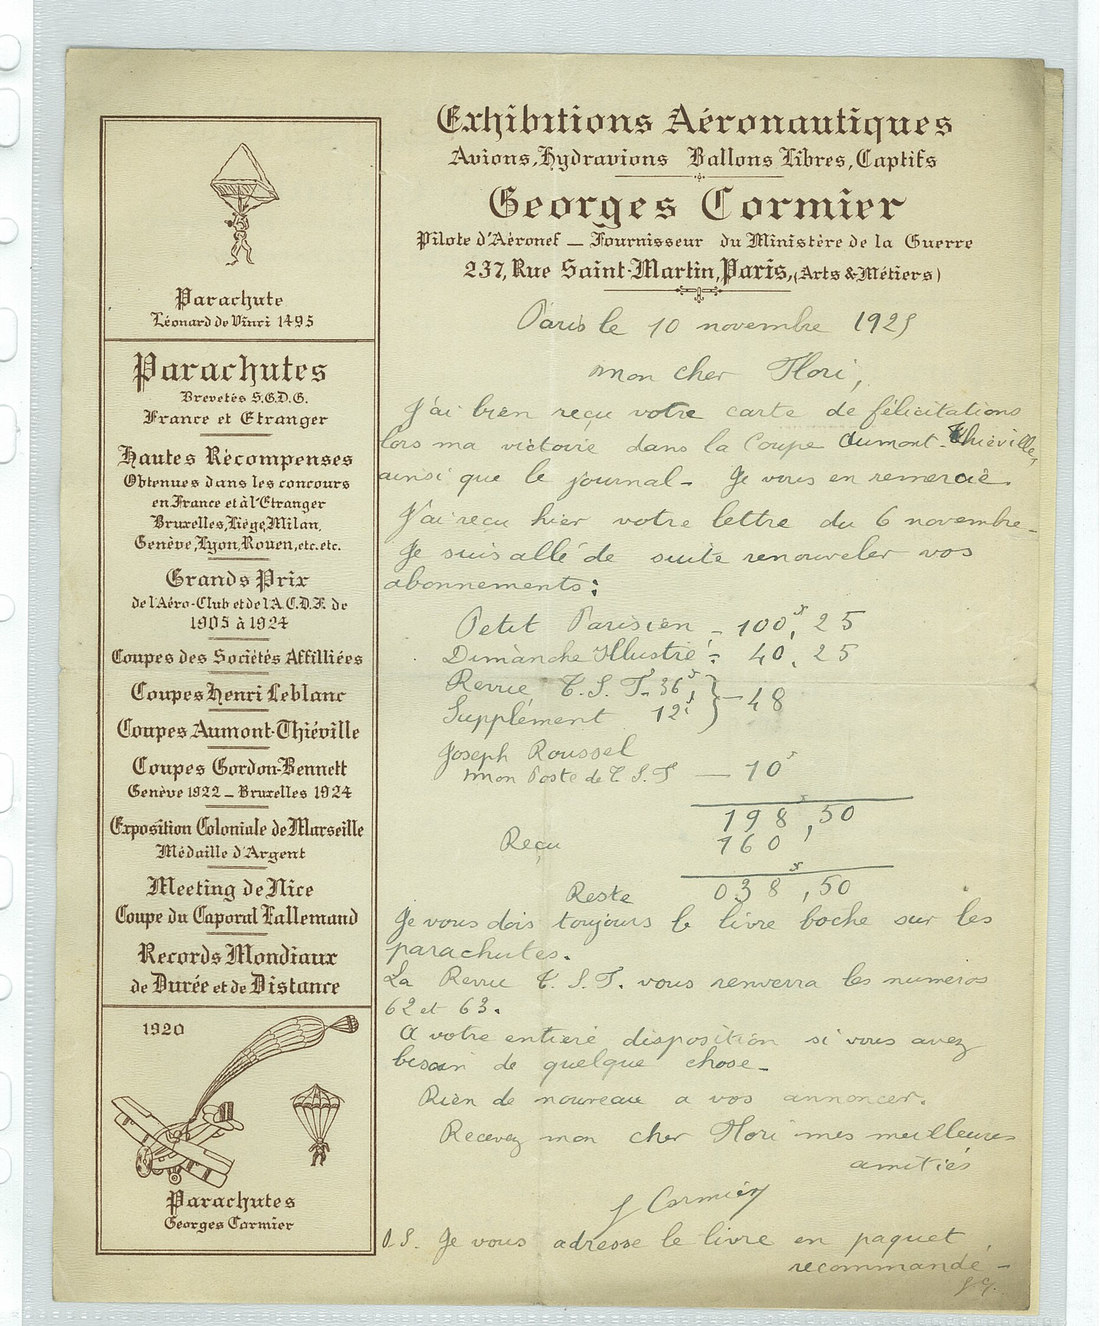 Exhibitions Aéronautiques
Avions, Hydravions Ballons Libres, Captifs
Georges Cormier
Pilote d'Aéronef — Fournisseur du Ministère de la Guerre
237, Rue Saint-Martin, Paris, (Arts & Métiers)
Parachute
Léonard de Vinci 1495
Parachutes
Brevetés S.G.D.G.
France et Etranger
Hautes Récompenses
Obtenues dans les concours
en France et à l'Etranger
Bruxelles, Liège, Milan,
Genève, Lyon, Rouen, etc. etc.
Grands Prix
de l'Aéro-Club et de l'A.C.D.F. de
1905 à 1924
Coupes des Sociétés Affilliées
Coupes Henri Leblanc
Coupes Aumont-Thiéville
Coupes Gordon-Bennett
Genève 1922 — Bruxelles 1924
Exposition Coloniale de Marseille
Médaille d'Argent
Meeting de Nice
Coupe du Caporal Lallemand
Records Mondiaux
de Durée et de Distance
1920
Parachutes
Georges Cormier
Paris le 10 novembre 1925
mon cher Flori,
J'ai bien reçu votre carte de félicitations
lors ma victoire dans la Coupe Aumont Thiéville,
ainsi que le journal - Je vous en remercie.
J'ai reçu hier votre lettre du 6 novembre -
Je suis allé de suite renouveler vos
abonnements :
Petit Parisien - 100f, 25
Dimanche Illustré - 40, 25
Revue T. S. F. 36f } - 48
Supplément 12f
Joseph Roussel
mon Poste de T S F — 10f
198f, 50
Reçu 160
Reste 038f, 50
Je vous dois toujours le livre boche sur les
parachutes.
La Revue T. S. F. vous renverra les numeros
62 et 63.
A votre entière disposition si vous avez
besoin de quelque chose -
Rien de nouveau a vos annoncer.
Recevez mon cher Flori mes meilleures
amitiés
G Cormier
P.S. Je vous adresse le livre en paquet
recommandé -
G. C.